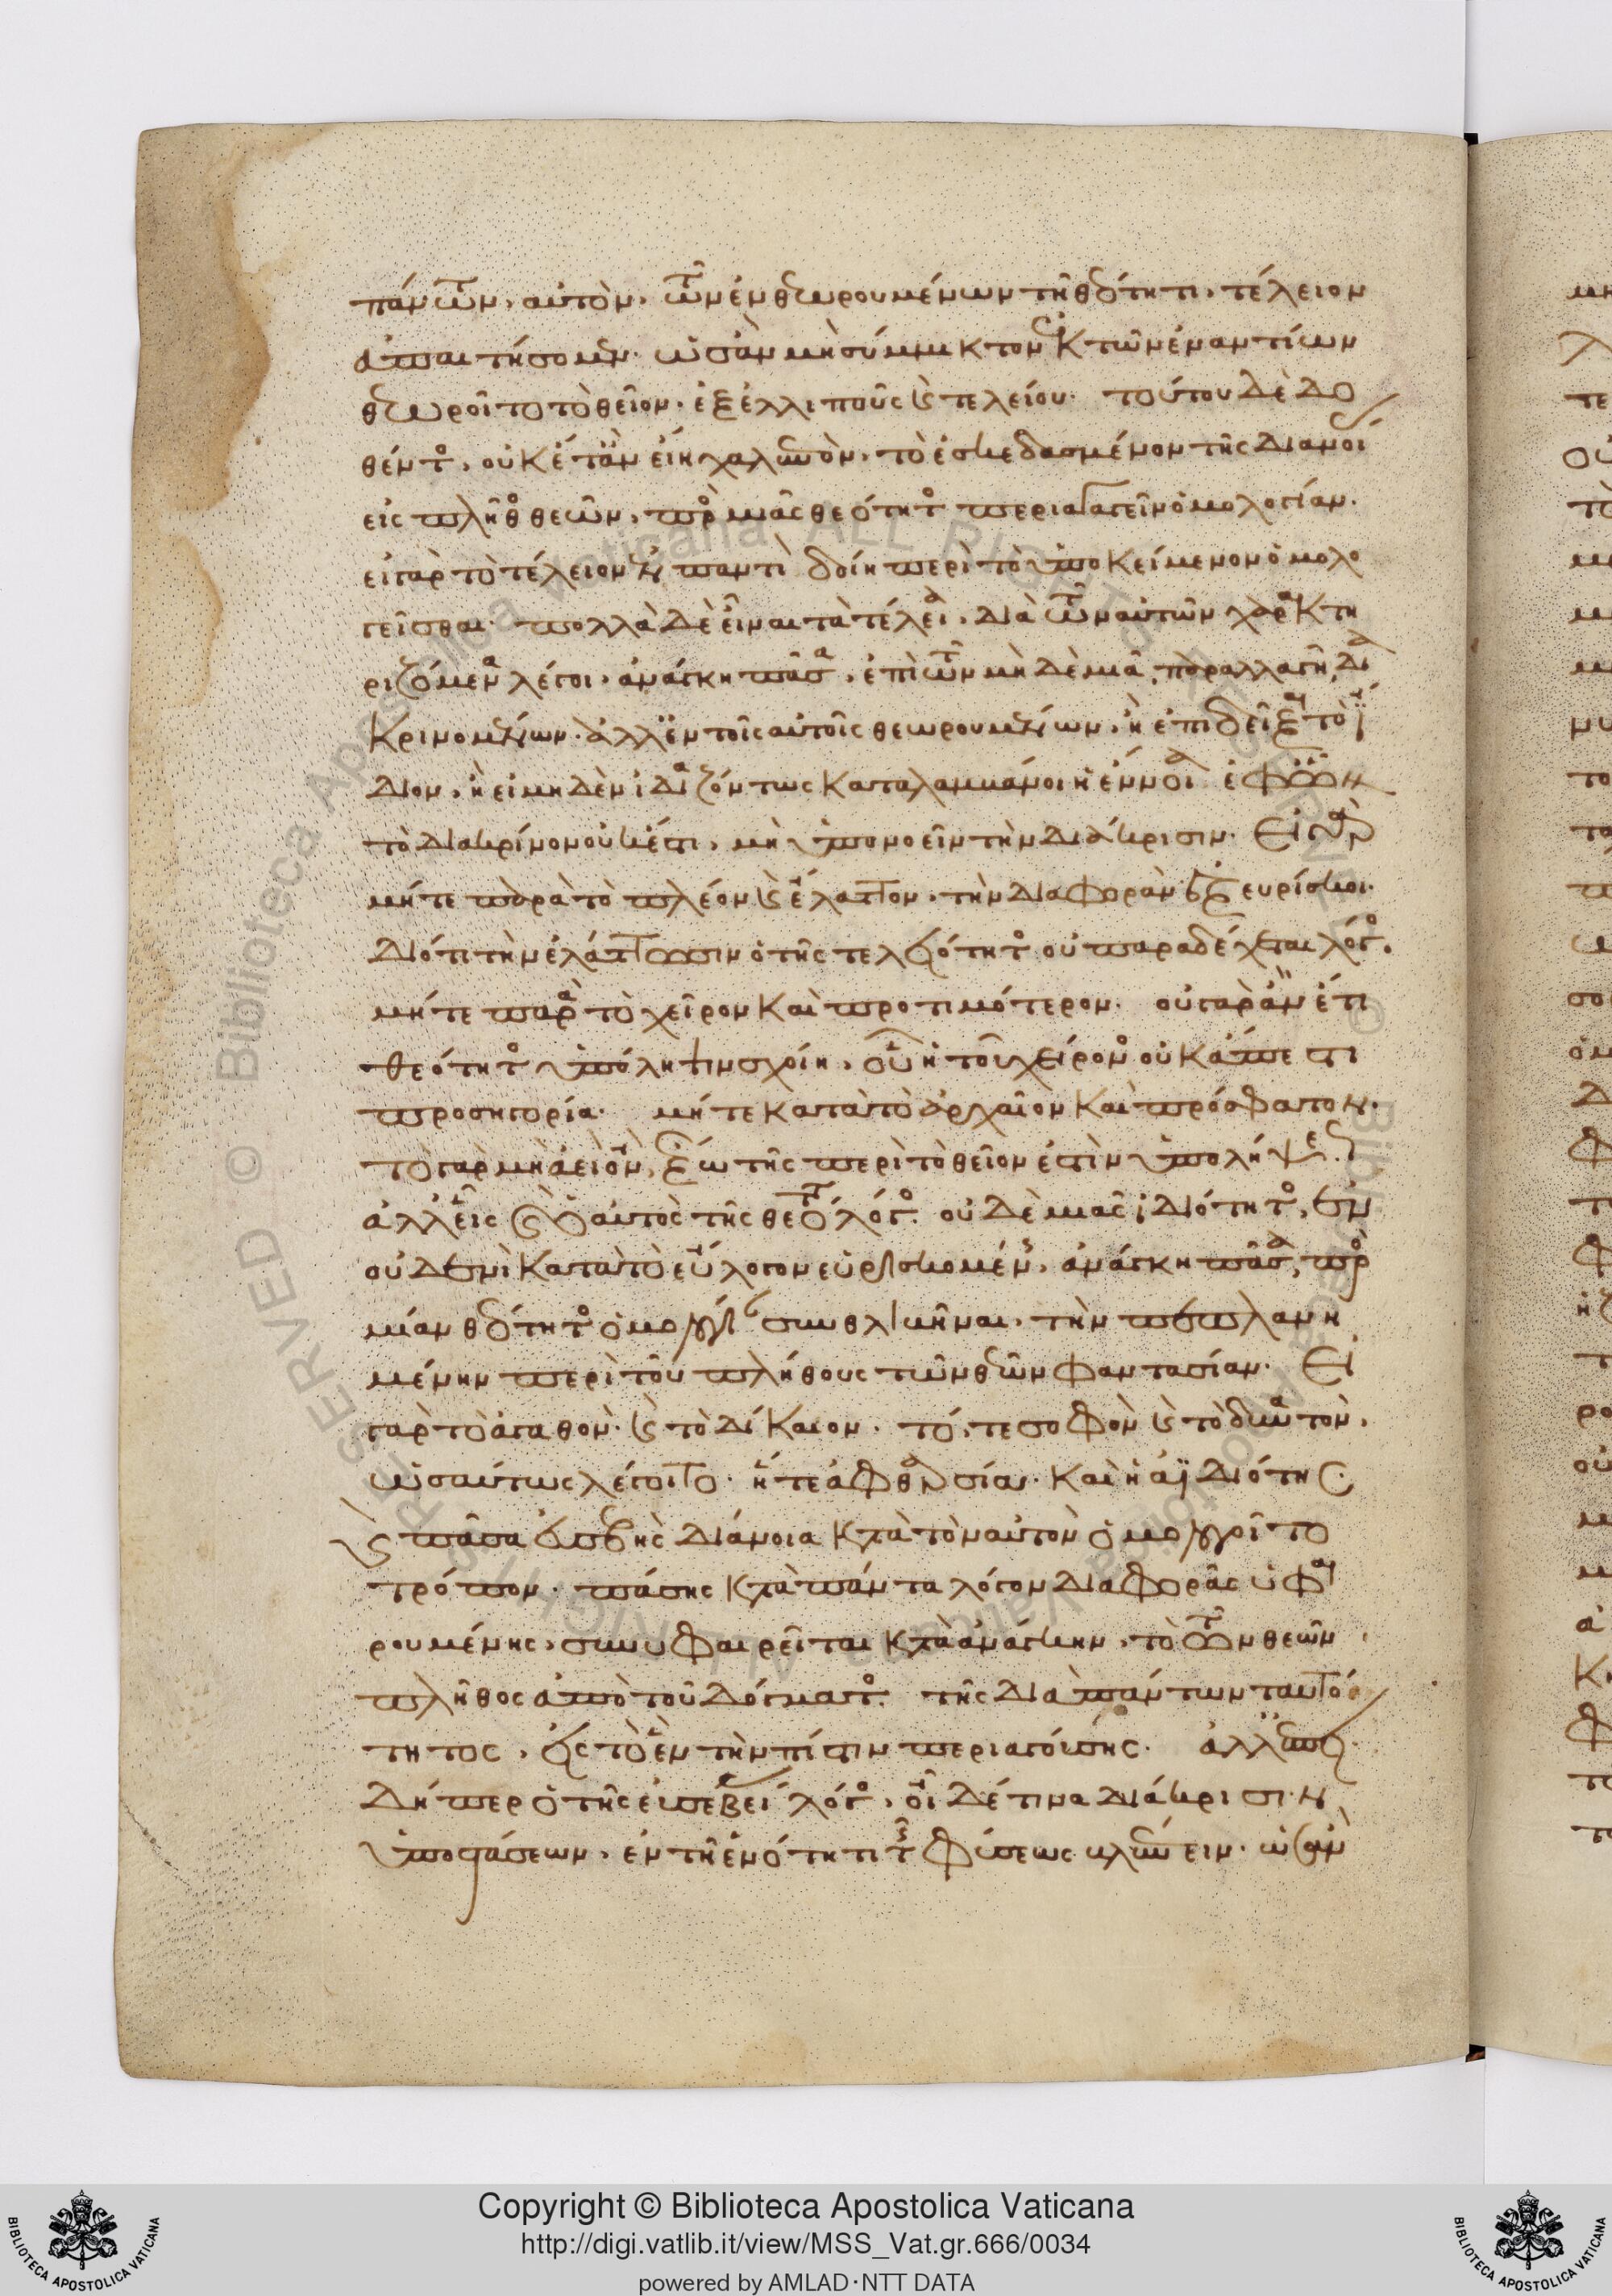 πάντων αὐτὸν, τῶν ἐνθεωρουμένων τῇ θεότητι, τέλειον
ἀπαιτήσομεν· ὡς ἂν μὴ σύμμικτον ἐκ τῶν ἐναντίων
θεωροῖτο τὸ θεῖον, ἐξ ἐλλιποῦς καὶ τελείου. τούτου δὲ δο
θέντος, οὐκέτ' ἂν εἴη χαλεπὸν, τὸ ἐσκεδασμένον τῆς διανοί
εἰς πλῆθος θεῶν, πρὸς μιᾶς θεότητος περιαγαγεῖν ὁμολογίαν.
εἰ γὰρ τὸ τέλειον ἐν παντὶ δοίη περὶ τὸ ὑποκείμενον ὁμολο
γεῖσθαι· πολλὰ δὲ εἶναι τὰ τέλεια, διὰ τῶν αὐτῶν χαρακτη
ριζόμενα λέγοι, ἀνάγκη πᾶσα, ἐπὶ τῶν μὴ δὲ μιᾷ παραλλαγῇ δια
κρινομένων· ἀλλ' ἐν τοῖς αὐτοῖς θεωρουμένων, ἢ ἐπιδεῖξαι τὸ ἴ
διον, ἢ εἰ μηδὲν ἰδιαζόντως καταλαμβάνοι ἡ ἔννοια ἐφ' ὧν
τὸ διακρῖνον οὐκ ἔστι, μὴ ὑπονοεῖν τὴν διάκρισιν. Εἰ γὰρ
μήτε παρὰ τὸ πλέον καὶ ἔλαττον, τὴν διαφορὰν ἐξευρίσκοι·
διότι τὴν ἐλάττωσιν ὁ τῆς τελειότητος οὐ παραδέχεται λόγος.
μήτε παρὰ τὸ χεῖρον καὶ προτιμότερον. οὐ γὰρ ἂν ἔτι
θεότητος ὑπόληψιν σχοίη, οὗ ἡ τοῦ χείρονος οὐκ ἄπεστι
προσηγορία. μήτε κατὰ τὸ ἀρχαῖον καὶ πρόσφατον.
τὸ γὰρ μὴ ἀεὶ ὂν, ἔξω τῆς περὶ τὸ θεῖον ἐστὶν ὑπολήψεως.
ἀλλ' εἷς καὶ ὁ αὐτὸς τῆς θεότητος λόγος. οὐδὲ μιᾶς ἰδιότητος, ἐν
οὐδενὶ κατὰ τὸ εὔλογον εὑρισκομένης, ἀνάγκη πᾶσα, πρὸς
μίαν θεότητος ὁμολογίαν συνθλιβῆναι, τὴν πεπλανη
μένην περὶ τοῦ πλήθους τῶν θεῶν φαντασίαν. Εἰ
γὰρ τὸ ἀγαθὸν· καὶ τὸ δίκαιον. τό, τε σοφὸν καὶ τὸ δυνατὸν,
ὡσαύτως λέγοιτο· ἥ τε ἀφθαρσία· καὶ ἡ ἀϊδιότης·
καὶ πᾶσα εὐσεβὴς διάνοια κατὰ τὸν αὐτὸν ὁμολογοῖτο
τρόπον· πάσης κατὰ πάντα λόγον διαφορᾶς ὑφαι
ρουμένης, συνυφαιρεῖται κατὰ ἀνάγκην, τὸ τῶν θεῶν
πλῆθος ἀπὸ τοῦ δόγματος. τῆς διὰ πάντων ταυτό
τητος, εἰς τὸ ἓν τὴν πίστιν περιαγούσης. ἀλλ' ἐπει
δήπερ ὁ τῆς εὐσεβεί λόγος, οἶδέ τινα διάκρισιν
ὑποστάσεων, ἐν τῇ ἑνότητι τῆς φύσεως βλέπειν· ὡς ἂν
Copyright © Biblioteca Apostolica Vaticana
http://digi.vatlib.it/view/MSS_Vat.gr.666/0034
powered by AMLAD·NTT DATA